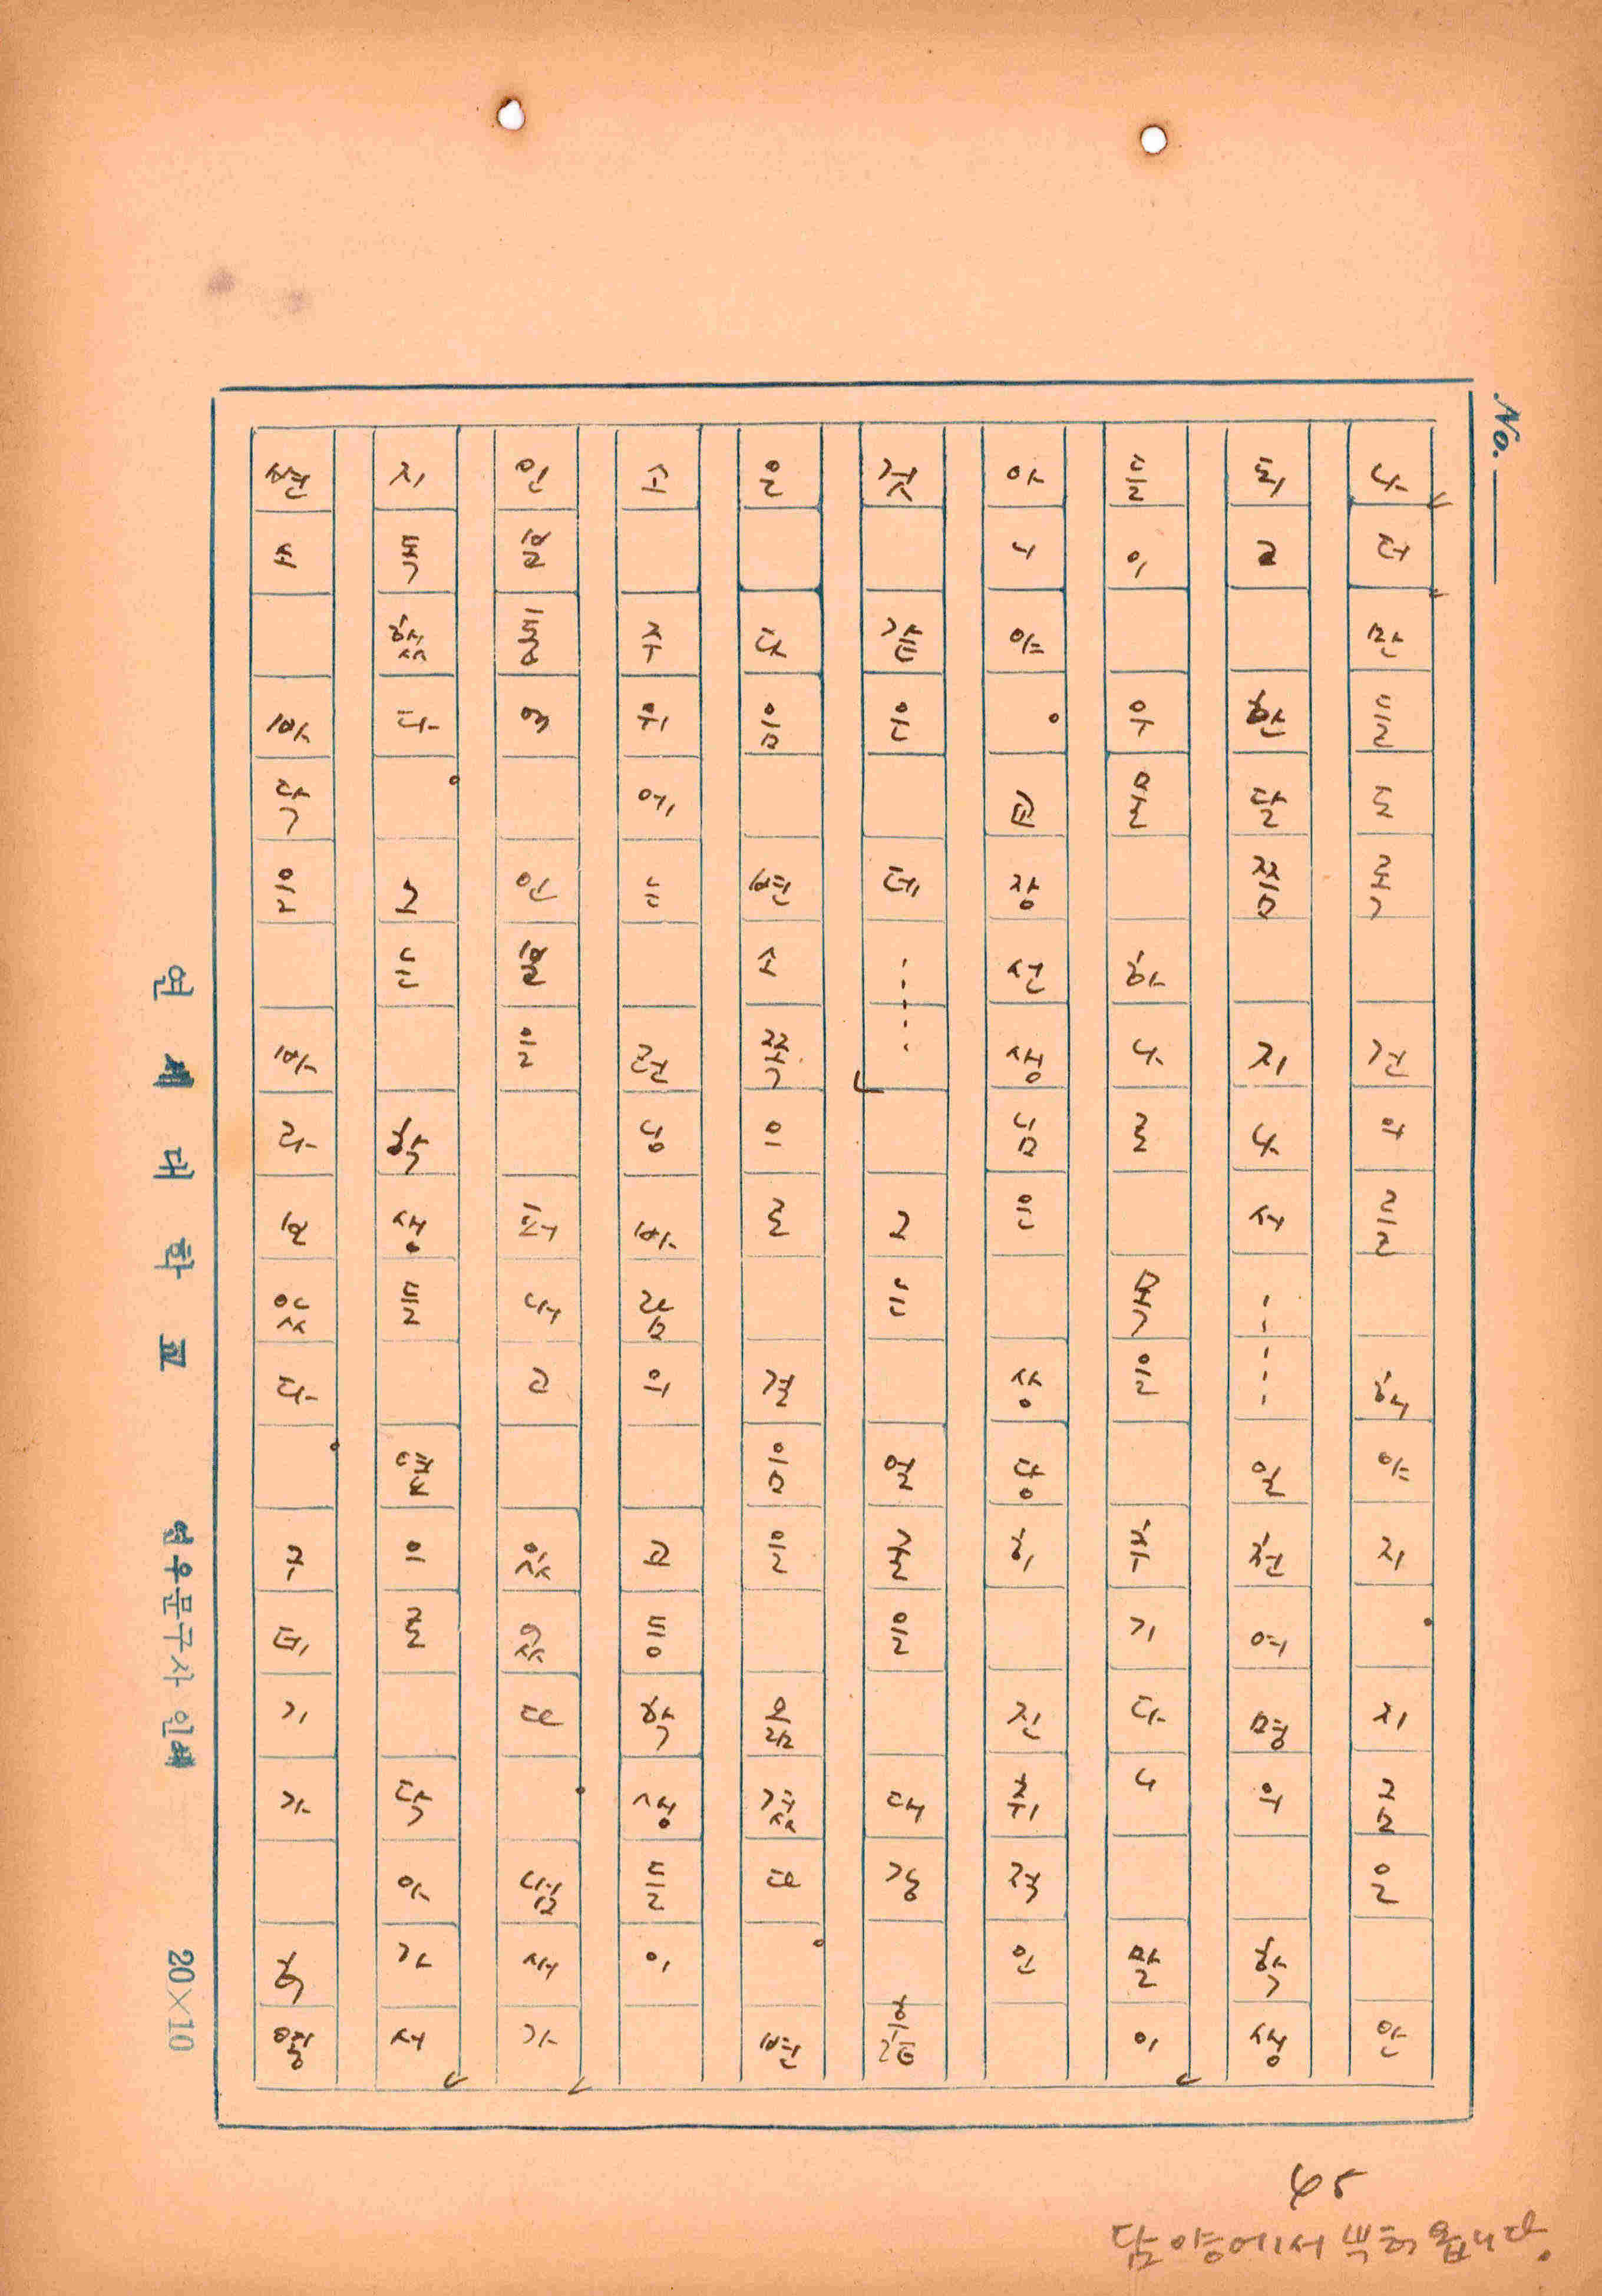 No.
나 더 만들도록 건의를 해야지. 지금은 안
되고 한달쯤 지나서…… 일천여명의 학생
들이 우물 하나로 목을 추기다니 말이
아니야. 교장선생님은 상당히 진취적인
것 같은데……」 그는 얼굴을 대강 흝
은 다음 변소쪽으로 걸음을 옮겼다. 변
소 주위에는 런닝바람의 고등학생들이
인분통에 인분을 퍼내고 있었다. 냄새가
지독했다. 그는 학생들 옆으로 다가서
변소 바닥을 바라보았다. 구데기가 허옇
연세대학교 연우문구사 인쇄 20×10
45
담양에서